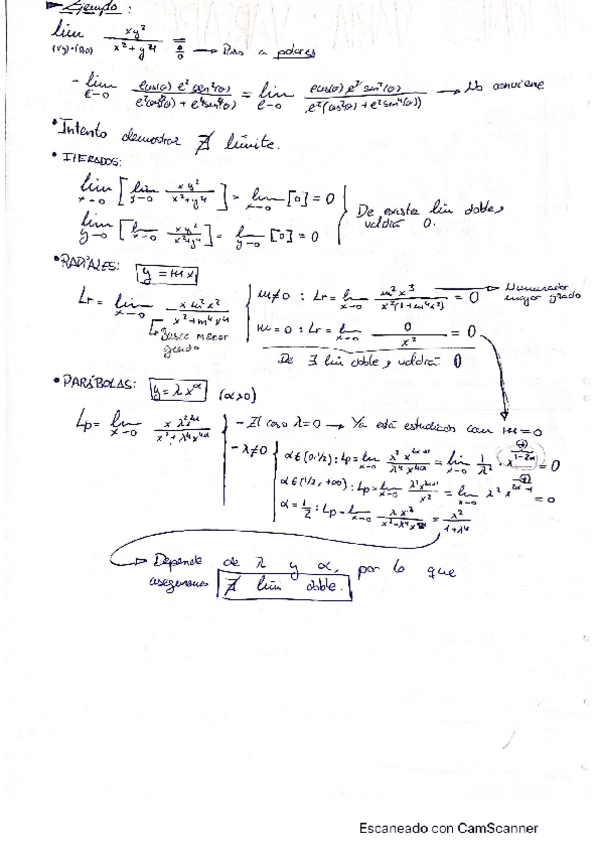 Ejemplo:
lim (x,y)→(0,0) xy²/(x²+y⁴) = 0/0 → Paso a polares
- lim ρ→0 ρcos(θ) ρ² sen²(θ) / (ρ²cos²(θ) + ρ⁴sen⁴(θ)) = lim ρ→0 ρcos(θ) ρ² sen²(θ) / (ρ²(cos²(θ) + ρ²sen⁴(θ))) → No conviene
• Intento demostrar ∄ límite.
• ITERADOS:
lim x→0 [lim y→0 xy²/(x²+y⁴)] = lim x→0 [0] = 0
lim y→0 [lim x→0 xy²/(x²+y⁴)] = lim y→0 [0] = 0
De existir lim doble, valdrá 0.
• RADIALES: y = mx
Lr = lim x→0 x m²x²/(x²+m⁴x⁴)
Busco menor grado
m≠0 : Lr = lim x→0 m²x³/(x²(1+m⁴x²)) = 0 → Numerador mayor grado
m=0 : Lr = lim x→0 0/x² = 0
De ∃ lim doble, valdrá 0
• PARÁBOLAS: y = λx^α (α>0)
Lp = lim x→0 x λ²x^2α/(x²+λ⁴x^4α)
- El caso λ=0 → Ya está estudiado con m=0
- λ≠0
α∈(0,1/2) : Lp = lim x→0 λ²x^2α+1/(λ⁴x^4α) = lim x→0 1/λ² · x^1-2α = 0
α∈(1/2,+∞) : Lp = lim x→0 λ²x^2α+1/x² = lim x→0 λ² x^2α-1 = 0
α = 1/2 : Lp = lim x→0 = λ²/(1+λ⁴)
→ Depende de λ y α, por lo que
aseguramos ∄ lim doble.
Escaneado con CamScanner